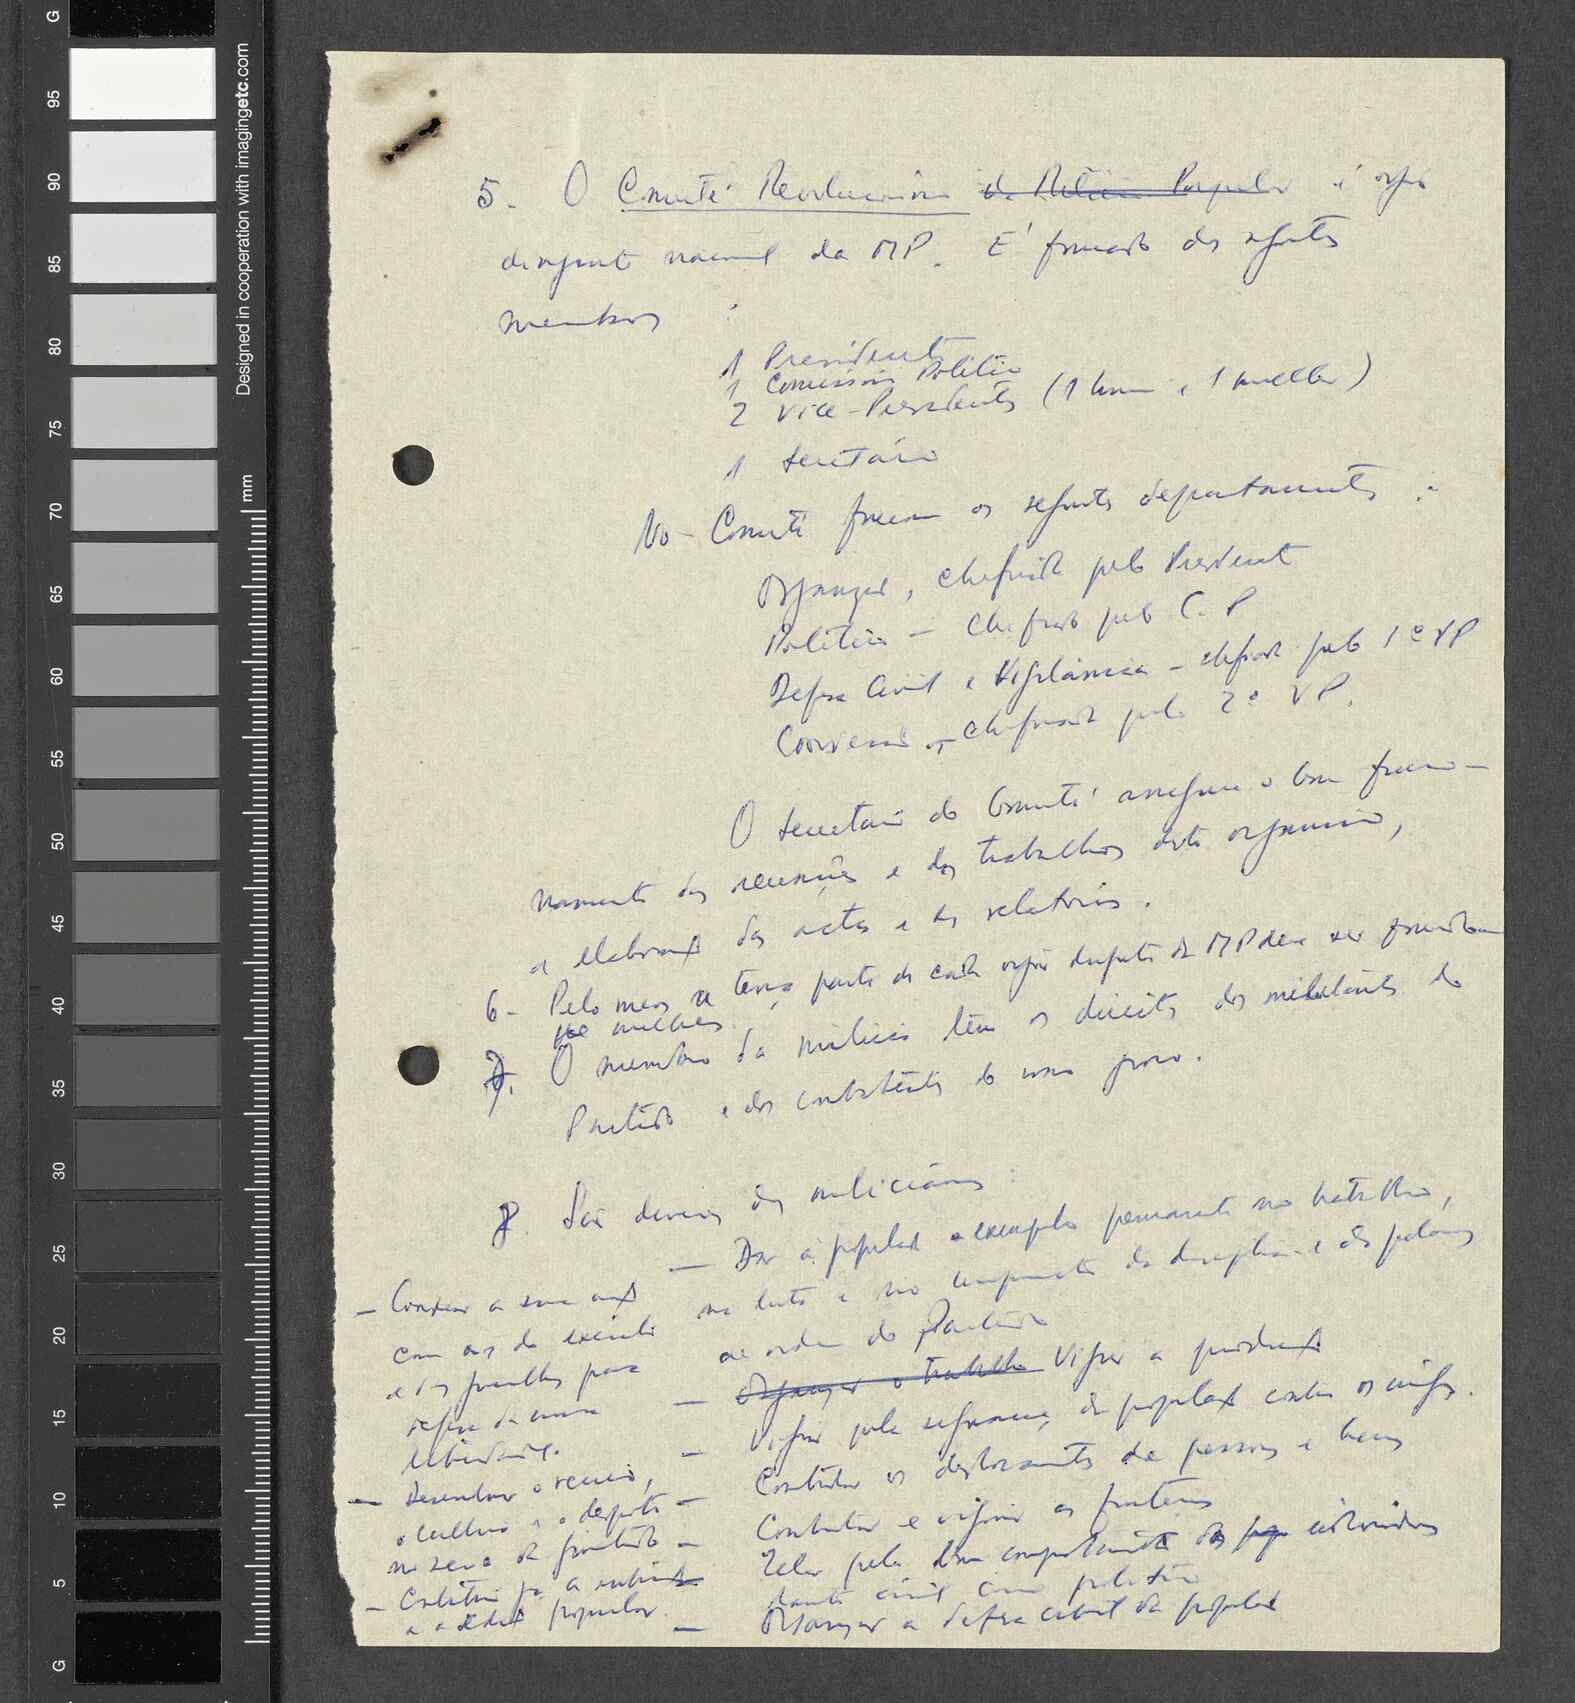 5. O Comité Revolucionário da Milícia Popular é orgão
dirigente nacional da MP. É formado dos seguintes
membros :
1 Presidente
1 Comissário Político
2 Vice-Presidentes (1 homem e 1 mulher)
1 Secretário
No Comité funcionam os seguintes departamentos :
Organização, chefiado pelo Presidente
Político - chefiado pelo C. P
Defesa Civil e Vigilância - chefiado pelo 1º VP
chefiado pelo 2º VP.
O Secretário do Comité assegura o bom funcio-
namento das reuniões e dos trabalhos deste organismo,
a elaboração das actas e dos relatórios.
6- Pelo menos a terça parte de cada orgão dirigente da MP deve ser
mulheres.
7. O membro da milícia tem os direitos dos militantes do
Partido e dos combatentes do nosso povo.
8. São deveres dos milicianos :
- Dar à população o exemplo permanente no trabalho,
na luta e no cumprimento da disciplina e das palavras
de ordem do Partido
- Organizar o trabalho Vigiar a produção
- Vigiar pela segurança da população contra os inimigos.
- Controlar os deslocamentos de pessoas e bens
- Controlar e vigiar as fronteiras
- Zelar pelo bom comportamento
tanto civil como político
- Organizar a defesa civil da população
- a sua acção
com as do exército
e das guerrilhas para
defesa da nossa
- Desenvolver o recreio,
a cultura e o desporto
no seio da juventude
- Contribuir para a
popular.